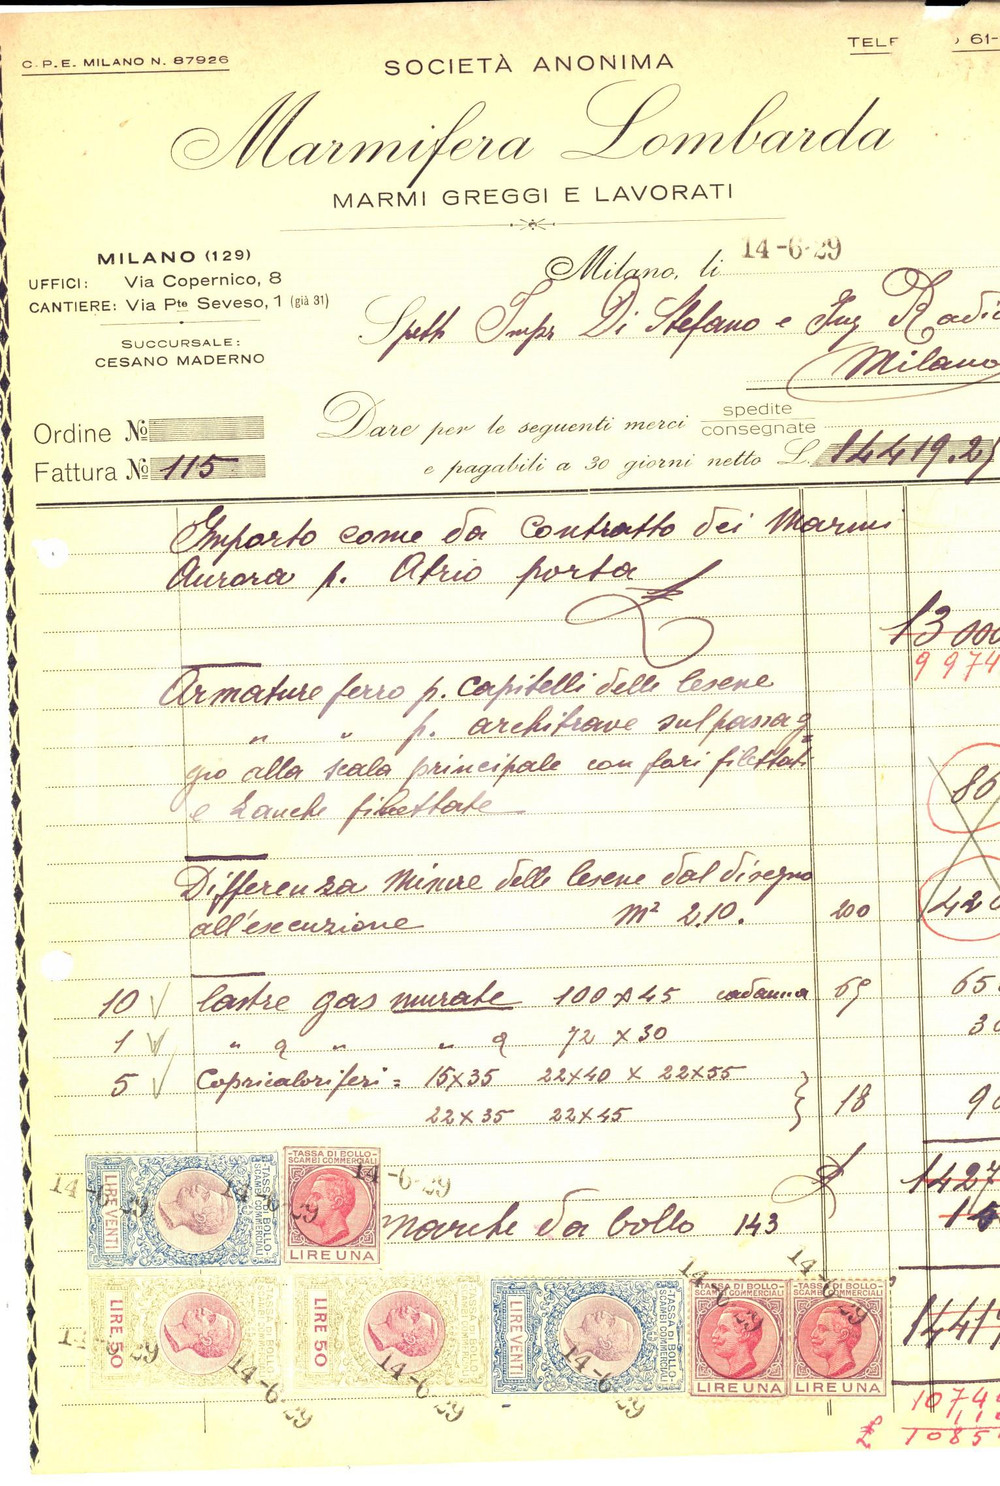 C.P.E. MILANO N. 87926
SOCIETÀ ANONIMA
Marmifera Lombarda
MARMI GREGGI E LAVORATI
MILANO (129)
UFFICI: Via Copernico, 8
CANTIERE: Via Pte Seveso, 1 (già 31)
SUCCURSALE:
CESANO MADERNO
Milano, li 14-6-29
Spett Impr Di Stefano e Ing Radic
Milano
Ordine No
Fattura No 115
Dare per le seguenti merci spedite consegnate
e pagabili a 30 giorni netto L. 14419.25
Importo come da contratto dei Marmi
Aurora p. Atrio porta
13 000
9 974
Armature ferro p. capitelli delle lesene
" " p. architrave sul passag
gio alla scala principale con fori filettati
e zanche filettate
86
Differenza misure delle lesene dal disegno
all'esecuzione m² 2.10. 200 420
10 lastre gas murate 100 x 45 cadauna 65 65
1 " " " 72 x 30 30
5 Copricaloriferi = 15x35 22x40 x 22x55
22x35 22x45 18 90
1427
TASSA DI BOLLO
SCAMBI COMMERCIALI
LIRE VENTI
14-6-29
TASSA DI BOLLO
SCAMBI COMMERCIALI
LIRE UNA
14-6-29
marche da bollo 143
LIRE 50
14-6-29
LIRE 50
14-6-29
TASSA DI BOLLO
SCAMBI COMMERCIALI
LIRE VENTI
14-6-29
TASSA DI BOLLO
SCAMBI COMMERCIALI
LIRE UNA
14-6-29
TASSA DI BOLLO
SCAMBI COMMERCIALI
LIRE UNA
14-6-29
1441
1074
1085